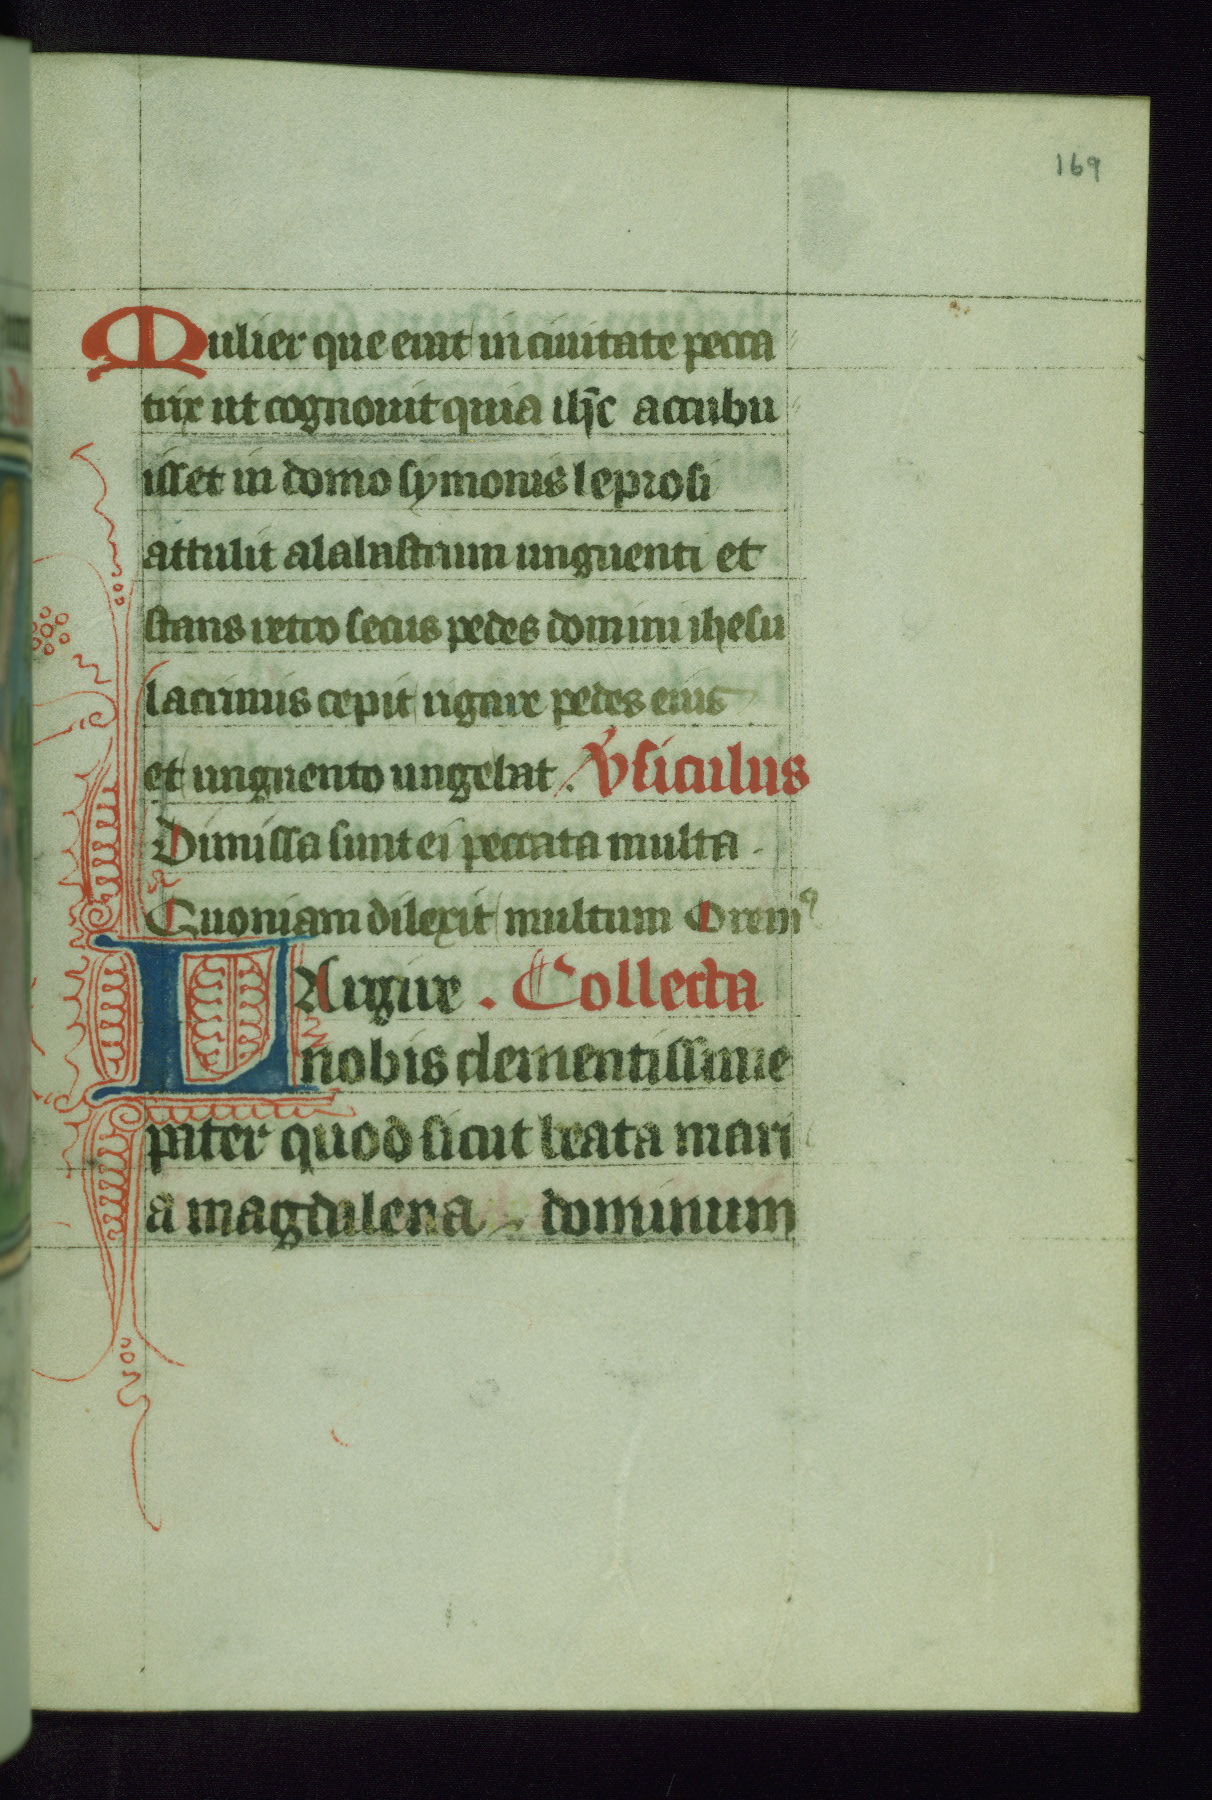 169
Mulier que erat in ciuitate pecca
trix ut cognouit quia ih̄c accubu
isset in domo symonis leprosi
attulit alabastrum unguenti et
stans retro secus pedes domini ihesu
lacrimis cepit rigare pedes eius
et unguento ungebat . V̓siculus
Dimissa sunt ei peccata multa .
Quoniam dilexit multum Oremꝰ
LArgire . Collecta
nobis clementissime
pater quod sicut beata mari
a magdalena dominum